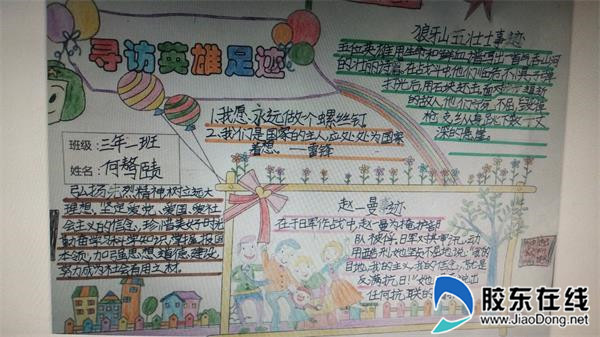 寻访英雄足迹
1.我愿永远做个螺丝钉
2.我们是国家的主人应处处为国家
着想 ——雷锋
班级:三年二班
姓名:何
弘扬先烈精神树立远大
理想,坚定爱党、爱国、爱社
会主义的信念,珍惜美好时光
勤奋学习科学知识,掌握报国
本领,加强思想道德建设,
努力成为社会有用之材。
狼牙山五壮士事迹
五位英雄用生命和鲜血谱写出一首气吞山河
的壮丽诗篇,在战斗中他们临危不惧
光后用石块
的敌人,他们宁死不屈
枪
深的悬崖
赵一曼事迹
在于日军作战中,赵一曼为掩护部
队被俘,日军对其
用酷刑,她坚贞不屈地说:"我的
目的,我的主义,我的信念,就是
反满抗日!"
任何抗联的
胶东在线
www.JiaoDong.net